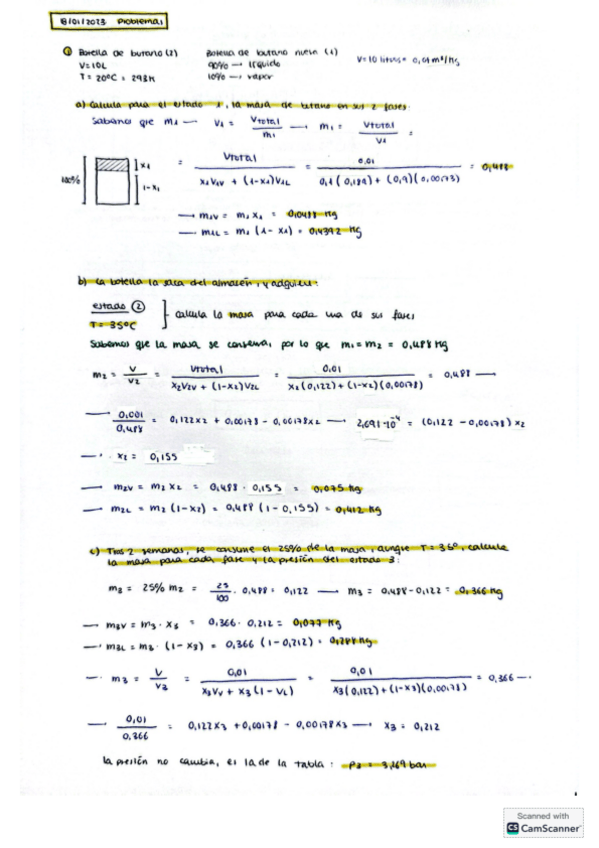 8/01/2023 Problemas
① Botella de butano (2)   Botella de butano nueva (1)   V=10 litros = 0,01 m³/kg
V=10L   90% → líquido
T = 20ºC = 293K   10% → vapor
a) Calcula para el estado 1, la masa de butano en sus 2 fases:
Sabemos que m₁ → V₁ = Vtotal / m₁ → m₁ = Vtotal / V₁ =
100%   x₁   1-x₁
= Vtotal / (x₁V₁V + (1-x₁)V₁L) = 0,01 / (0,1(0,189) + (0,9)(0,00173)) = 0,488
→ m₁V = m₁ x₁ = 0,0488 kg
→ m₁L = m₁ (1-x₁) = 0,4392 kg
b) La botella la saca del almacén, y adquiere:
estado ②
T = 35ºC   calcula la masa para cada una de sus fases
Sabemos que la masa se conserva, por lo que m₁=m₂ = 0,488 kg
m₂ = V / V₂ = Vtotal / (x₂V₂V + (1-x₂)V₂L) = 0,01 / (x₂(0,122)+(1-x₂)(0,00178)) = 0,488 →
→ 0,001 / 0,488 = 0,122x₂ + 0,00178 - 0,00178x₂ → 2,691·10⁻⁴ = (0,122 - 0,00178) x₂
→ x₂ = 0,155
→ m₂V = m₂ x₂ = 0,488 · 0,155 = 0,075 kg
→ m₂L = m₂ (1-x₂) = 0,488 (1-0,155) = 0,412 kg
c) Tras 2 semanas, se consume el 25% de la masa, aunque T = 35º, calcula
la masa para cada fase y la presión del estado 3:
m₃ = 25% m₂ = 25 / 100 · 0,488 = 0,122 → m₃ = 0,488-0,122 = 0,366 kg
→ m₃V = m₃ · x₃ = 0,366 · 0,212 = 0,077 kg
→ m₃L = m₃ · (1-x₃) = 0,366 (1-0,212) = 0,288 kg
→ m₃ = V / V₃ = 0,01 / (x₃Vv + x₃(1-VL)) = 0,01 / (x₃(0,122)+(1-x₃)(0,00178)) = 0,366 →
→ 0,01 / 0,366 = 0,122x₃ + 0,00178 - 0,00178x₃ → x₃ = 0,212
la presión no cambia, es la de la tabla: p₃ = 3,269 bar
Scanned with
CS CamScanner